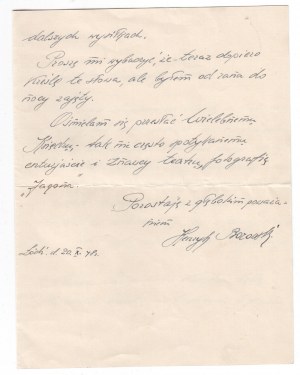 dalszych wysiłkach.
Proszę mi wybaczyć, że teraz dopiero
kreślę te słowa, ale byłem od rana do
nocy zajęty.
Ośmielam się przesłać Wielebnemu
Księdzu, tak mi często
entuzjaście i znawcy teatru, fotografię
"Jagona"
Pozostaję z głębokim powa-
żaniem
Henryk
Łódź, d. 20